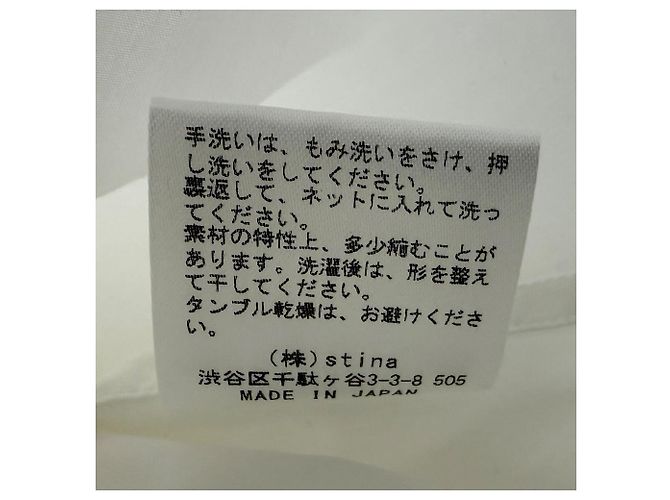 手洗いは、もみ洗いをさけ、押
し洗いをしてください。
裏返して、ネットに入れて洗っ
てください。
素材の特性上、多少縮むことが
あります。洗濯後は、形を整え
て干してください。
タンブル乾燥は、お避けくださ
い。
(株)stina
渋谷区千駄ヶ谷3-3-8 505
MADE IN JAPAN